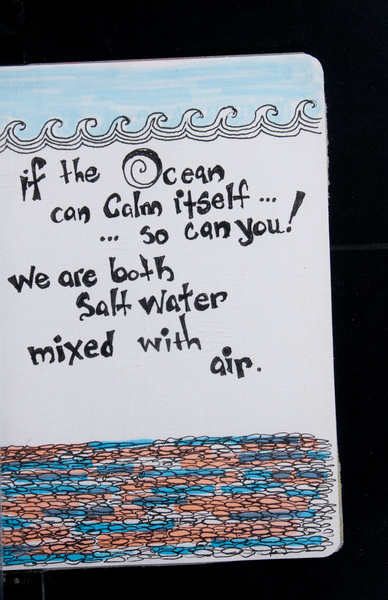 if the Ocean
can Calm itself ...
... so can you!
we are both
Salt Water
mixed with
air.